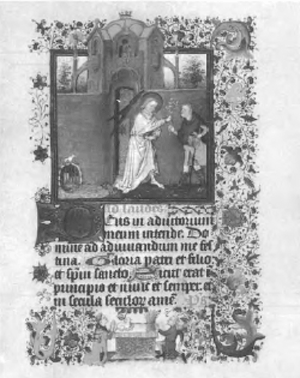 ad laudes
Deus in adiutorium
meum intende. Do
mine ad adiuuandum me fes
tina. Gloria patri et filio
et spiri sancto. Sicut erat i
principio et nunc et semper. et
in secula seculor ame. Ps